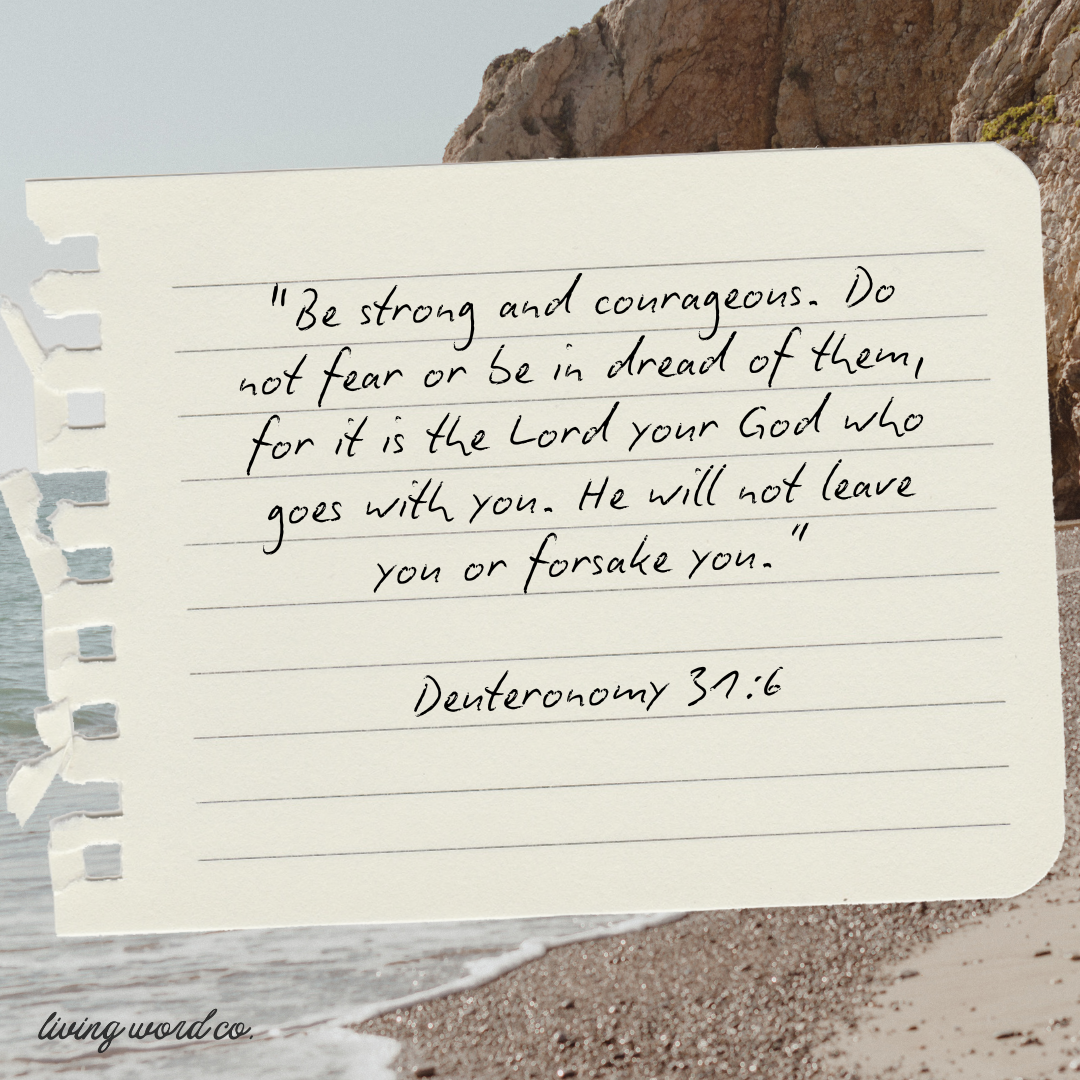 "Be strong and courageous. Do
not fear or be in dread of them,
for it is the Lord your God who
goes with you. He will not leave
you or forsake you."
Deuteronomy 31:6
living word co.